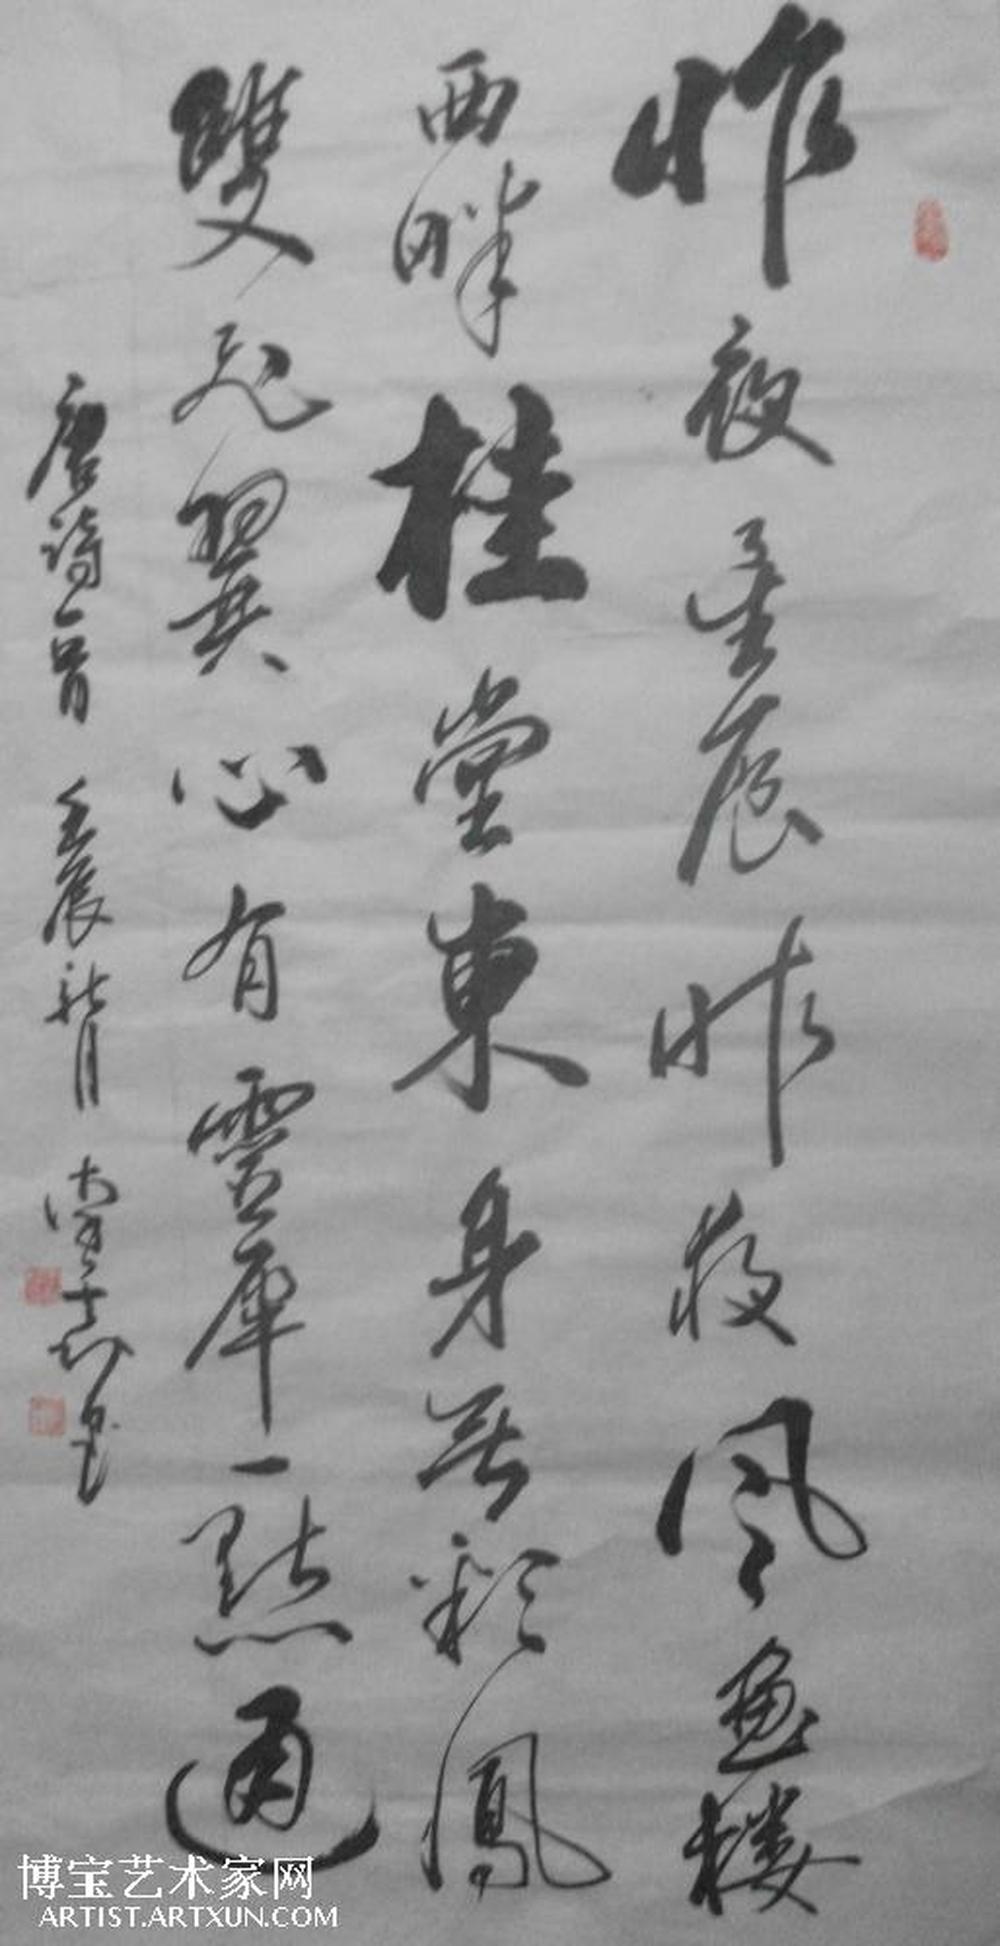 昨夜星辰昨夜风画楼
西畔桂堂東身無彩鳳
雙飛翼心有靈犀一點通
唐詩一首 壬辰 月 書
博宝艺术家网
ARTIST.ARTXUN.COM